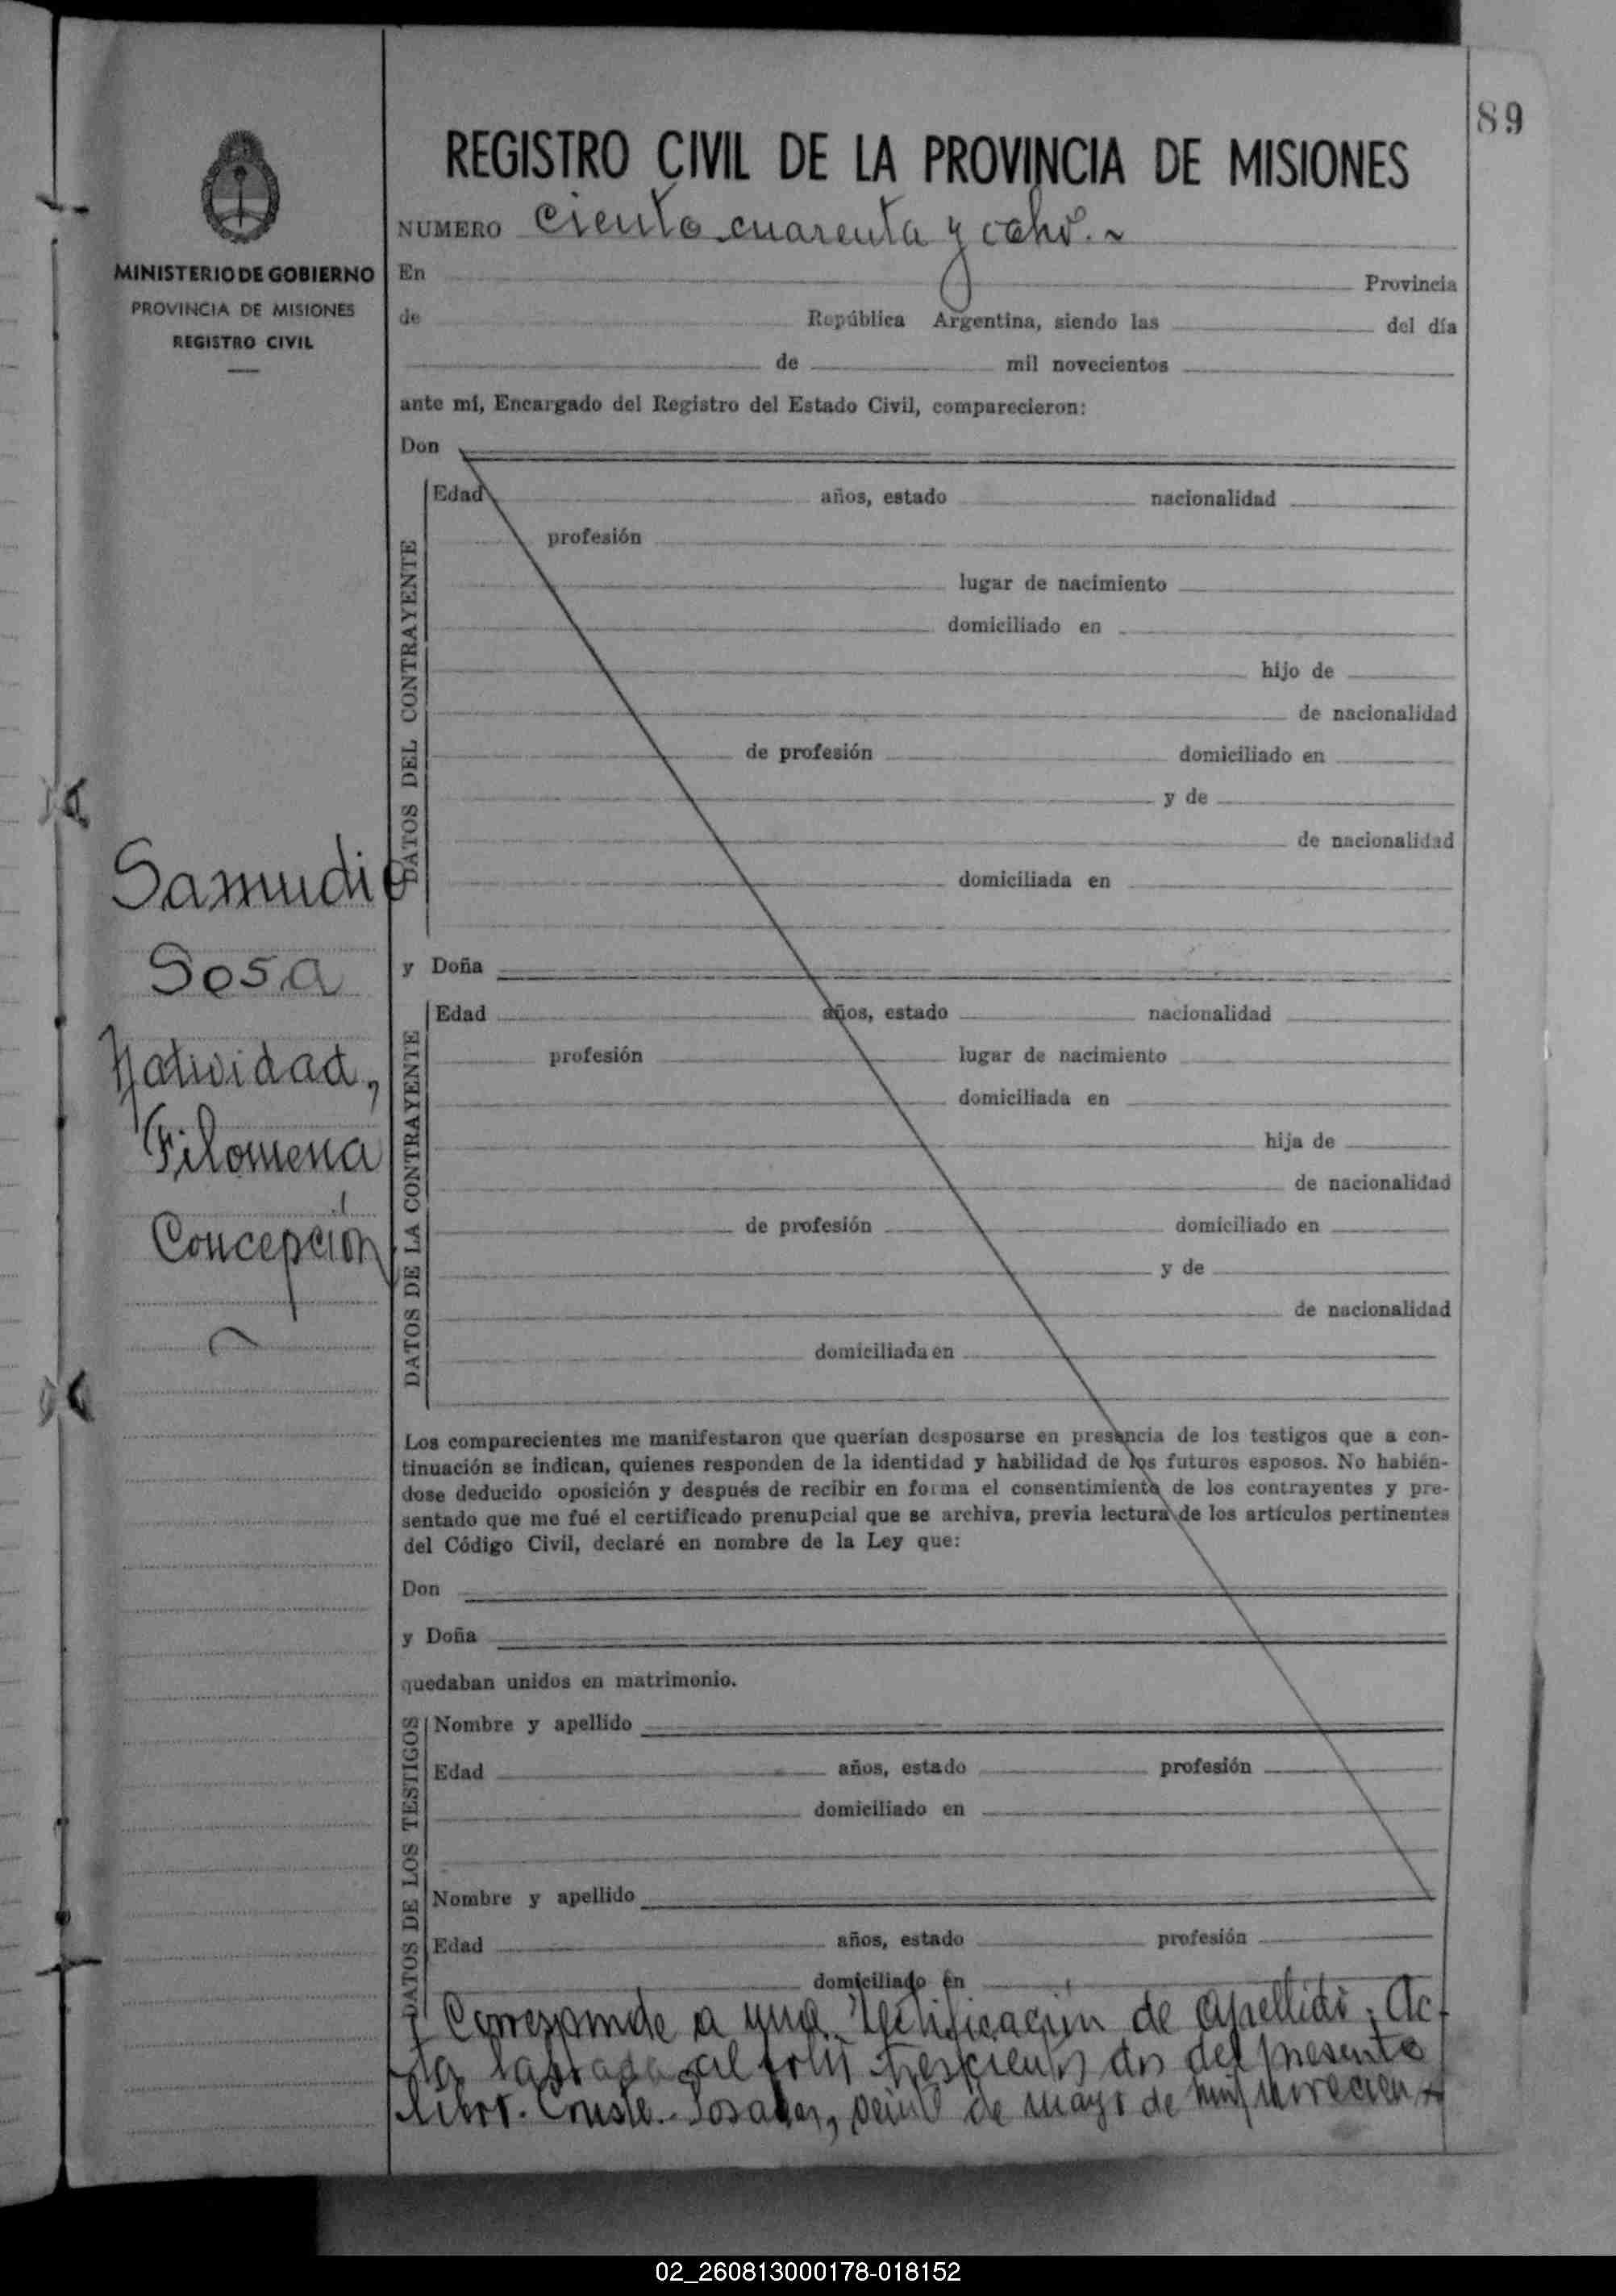 89
REGISTRO CIVIL DE LA PROVINCIA DE MISIONES
NUMERO Ciento cuarenta y ocho.~
MINISTERIO DE GOBIERNO
PROVINCIA DE MISIONES
REGISTRO CIVIL
En Provincia
de República Argentina, siendo las del día
de mil novecientos
ante mí, Encargado del Registro del Estado Civil, comparecieron:
Don
DATOS DEL CONTRAYENTE
Edad años, estado nacionalidad
profesión
lugar de nacimiento
domiciliado en
hijo de
de nacionalidad
de profesión domiciliado en
y de
de nacionalidad
domiciliada en
Samudio
Sosa
Natividad,
Filomena
Concepción
y Doña
DATOS DE LA CONTRAYENTE
Edad años, estado nacionalidad
profesión lugar de nacimiento
domiciliada en
hija de
de nacionalidad
de profesión domiciliado en
y de
de nacionalidad
domiciliada en
Los comparecientes me manifestaron que querían desposarse en presencia de los testigos que a con-
tinuación se indican, quienes responden de la identidad y habilidad de los futuros esposos. No habién-
dose deducido oposición y después de recibir en forma el consentimiento de los contrayentes y pre-
sentado que me fué el certificado prenupcial que se archiva, previa lectura de los artículos pertinentes
del Código Civil, declaré en nombre de la Ley que:
Don
y Doña
quedaban unidos en matrimonio.
DATOS DE LOS TESTIGOS
Nombre y apellido
Edad años, estado profesión
domiciliado en
Nombre y apellido
Edad años, estado profesión
domiciliado en
Corresponde a una rectificación de apellido. Ac-
ta labrada al folio trescientos dos del presente
libro. Conste.- Posadas, de mayo de mil novecien
02_260813000178-018152